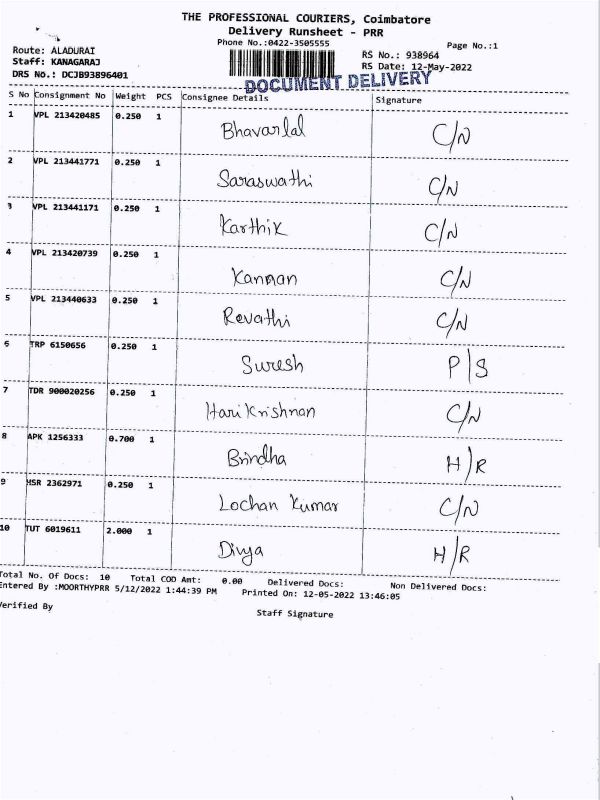 THE PROFESSIONAL COURIERS, Coimbatore
Delivery Runsheet - PRR
Phone No.:0422-3505555
Page No.:1
Route: ALADURAI
RS No.: 938964
Staff: KANAGARAJ
RS Date: 12-May-2022
DRS No.: DCJB93896401
DOCUMENT DELIVERY
S No Consignment No Weight PCS Consignee Details Signature
1 VPL 213420485 0.250 1 Bhavarlal C/N
2 VPL 213441771 0.250 1 Saraswathi C/N
3 VPL 213441171 0.250 1 Karthik C/N
4 VPL 213420739 0.250 1 Kannan C/N
5 VPL 213440633 0.250 1 Revathi C/N
6 TRP 6150656 0.250 1 Suresh P/S
7 TDR 900020256 0.250 1 Hari Krishnan C/N
8 APK 1256333 0.700 1 Brindha H/R
9 HSR 2362971 0.250 1 Lochan Kumar C/N
10 TUT 6019611 2.000 1 Divya H/R
Total No. Of Docs: 10 Total COD Amt: 0.00 Delivered Docs: Non Delivered Docs:
Entered By :MOORTHYPRR 5/12/2022 1:44:39 PM Printed On: 12-05-2022 13:46:05
Verified By Staff Signature